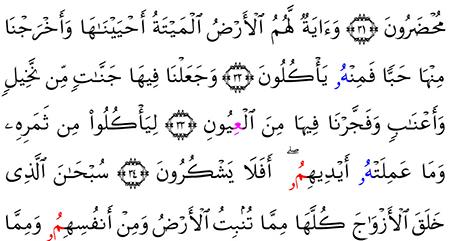 مُحْضَرُونَ ۝٣١ وَءَايَةٌ لَّهُمُ الْأَرْضُ الْمَيْتَةُ أَحْيَيْنَٰهَا وَأَخْرَجْنَا
مِنْهَا حَبًّا فَمِنْهُۥ يَأْكُلُونَ ۝٣٢ وَجَعَلْنَا فِيهَا جَنَّٰتٍ مِّن نَّخِيلٍ
وَأَعْنَٰبٍ وَفَجَّرْنَا فِيهَا مِنَ الْعِيُونِ ۝٣٣ لِيَأْكُلُوا۟ مِن ثَمَرِهِۦ
وَمَا عَمِلَتْهُۥ أَيْدِيهِمُۥۖ أَفَلَا يَشْكُرُونَ ۝٣٤ سُبْحَٰنَ الَّذِى
خَلَقَ الْأَزْوَٰجَ كُلَّهَا مِمَّا تُنۢبِتُ الْأَرْضُ وَمِنْ أَنفُسِهِمُۥ وَمِمَّا